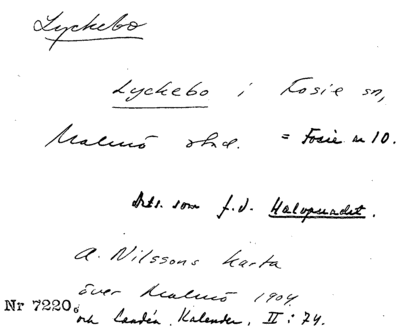 Lyckebo
Lyckebo i Fosie sn,
Malmö obd. = Fosie n 10.
dets. som f.d. Halvpundet.
A. Nilssons karta
över Malmö 1904
Nr 7220. och Kalender, II: 74.